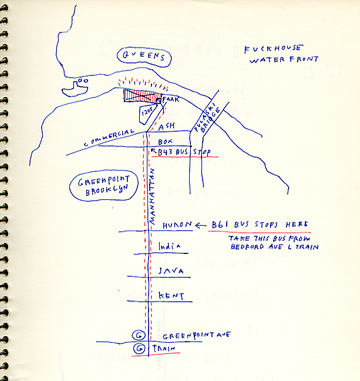 QUEENS
FUCKHOUSE
WATER FRONT
PARK
1205
PULASKI
BRIDGE
COMMERCIAL
ASH
BOX
B43 BUS STOP
GREENPOINT
BROOKLYN
MANHATTAN
HURON ← B61 BUS STOPS HERE
TAKE THIS BUS FROM
BEDFORD AVE L TRAIN
India
JAVA
KENT
G GREENPOINT AVE
G TRAIN